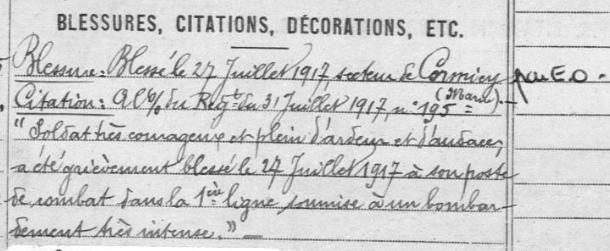 BLESSURES, CITATIONS, DÉCORATIONS, ETC.
Blessure: Blessé le 27 Juillet 1917 secteur de Cormicy par E.O.
(Marne).
Citation: du Regt du 31 Juillet 1917, n° 195 =
"Soldat très courageux et plein d'ardeur et d'audace,
a été grièvement blessé le 27 Juillet 1917 à son poste
de combat dans la 1ère ligne soumise à un bombar-
dement très intense." —